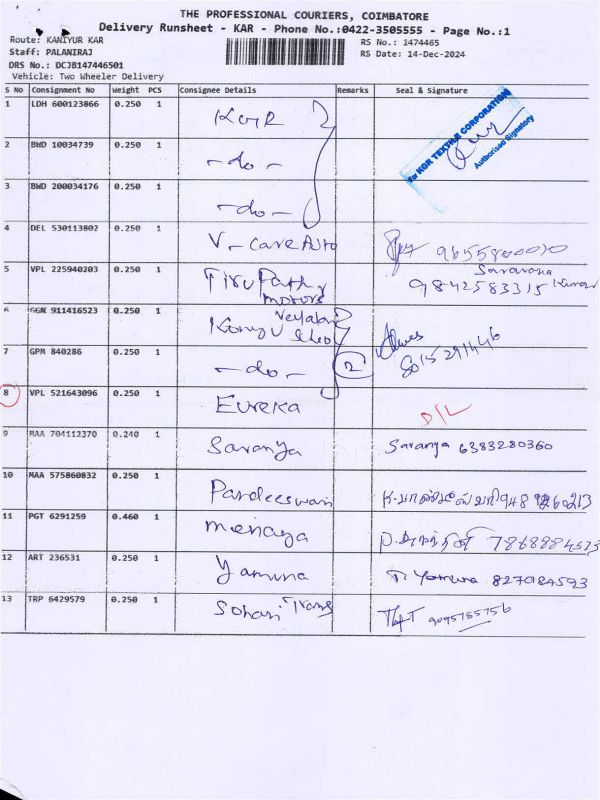 THE PROFESSIONAL COURIERS, COIMBATORE
Delivery Runsheet - KAR - Phone No.:0422-3505555 - Page No.:1
Route: KANIYUR KAR RS No.: 1474465
Staff: PALANIRAJ RS Date: 14-Dec-2024
DRS No.: DCJB147446501
Vehicle: Two Wheeler Delivery
S No Consignment No Weight PCS Consignee Details Remarks Seal & Signature
1 LDH 600123866 0.250 1 KGR
For KGR TEXTILE CORPORATION
Authorised Signatory
2 BWD 10034739 0.250 1 -do-
3 BWD 200034176 0.250 1 -do-
4 DEL 530113802 0.250 1 V-care Auto 9655800030
5 VPL 225940203 0.250 1 Tirupathy motors Saravana Kumar 9842583315
6 GGN 911416523 0.250 1 Kongu
7 GPR 840286 0.250 1 -do- 2
8 VPL 521643096 0.250 1 Eureka D/L
9 MAA 704112370 0.240 1 Saranya Saranya 6383280360
10 MAA 575860832 0.250 1 Pandeeswari
11 PGT 6291259 0.460 1 menaga
12 ART 236531 0.250 1 Yamuna T. Yamuna 827984593
13 TRP 6429579 0.250 1 Sohan Trans 9095785756